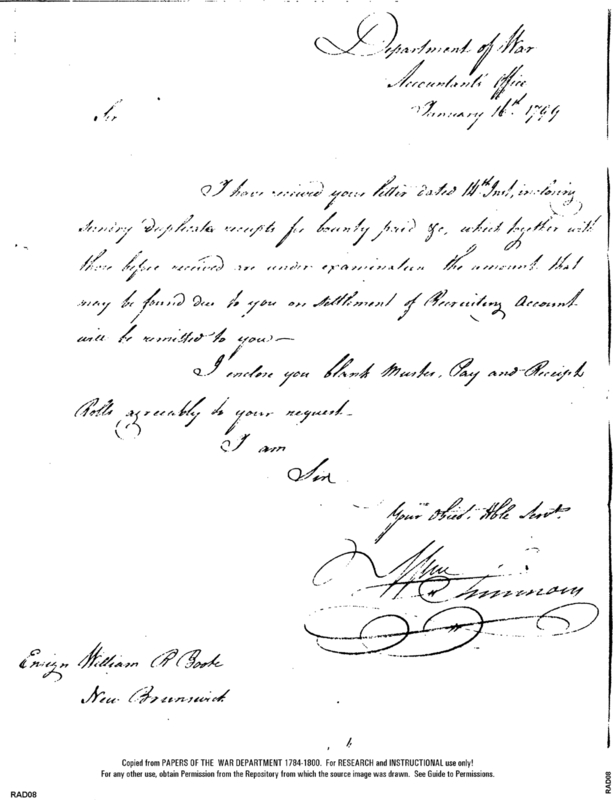 Department of War
Accountants Office
January 16th. 1799
Sir
I have received your letter dated 14th Inst, inclosing
sundry duplicate receipts for bounty paid &c, which together with
those before received are under examination the amount that
may be found due to you on settlement of Recruiting Account
will be remitted to you—
I enclose you blank Muster, Pay and Receipt
Rolls agreeably to your request—
I am
Sir
Your Obed. Hble Servt.
Wm Simmons
Ensign William R Boote
New Brunswick
Copied from PAPERS OF THE WAR DEPARTMENT 1784-1800. For RESEARCH and INSTRUCTIONAL use only!
For any other use, obtain Permission from the Repository from which the source image was drawn. See Guide to Permissions.
RAD08
RAD08